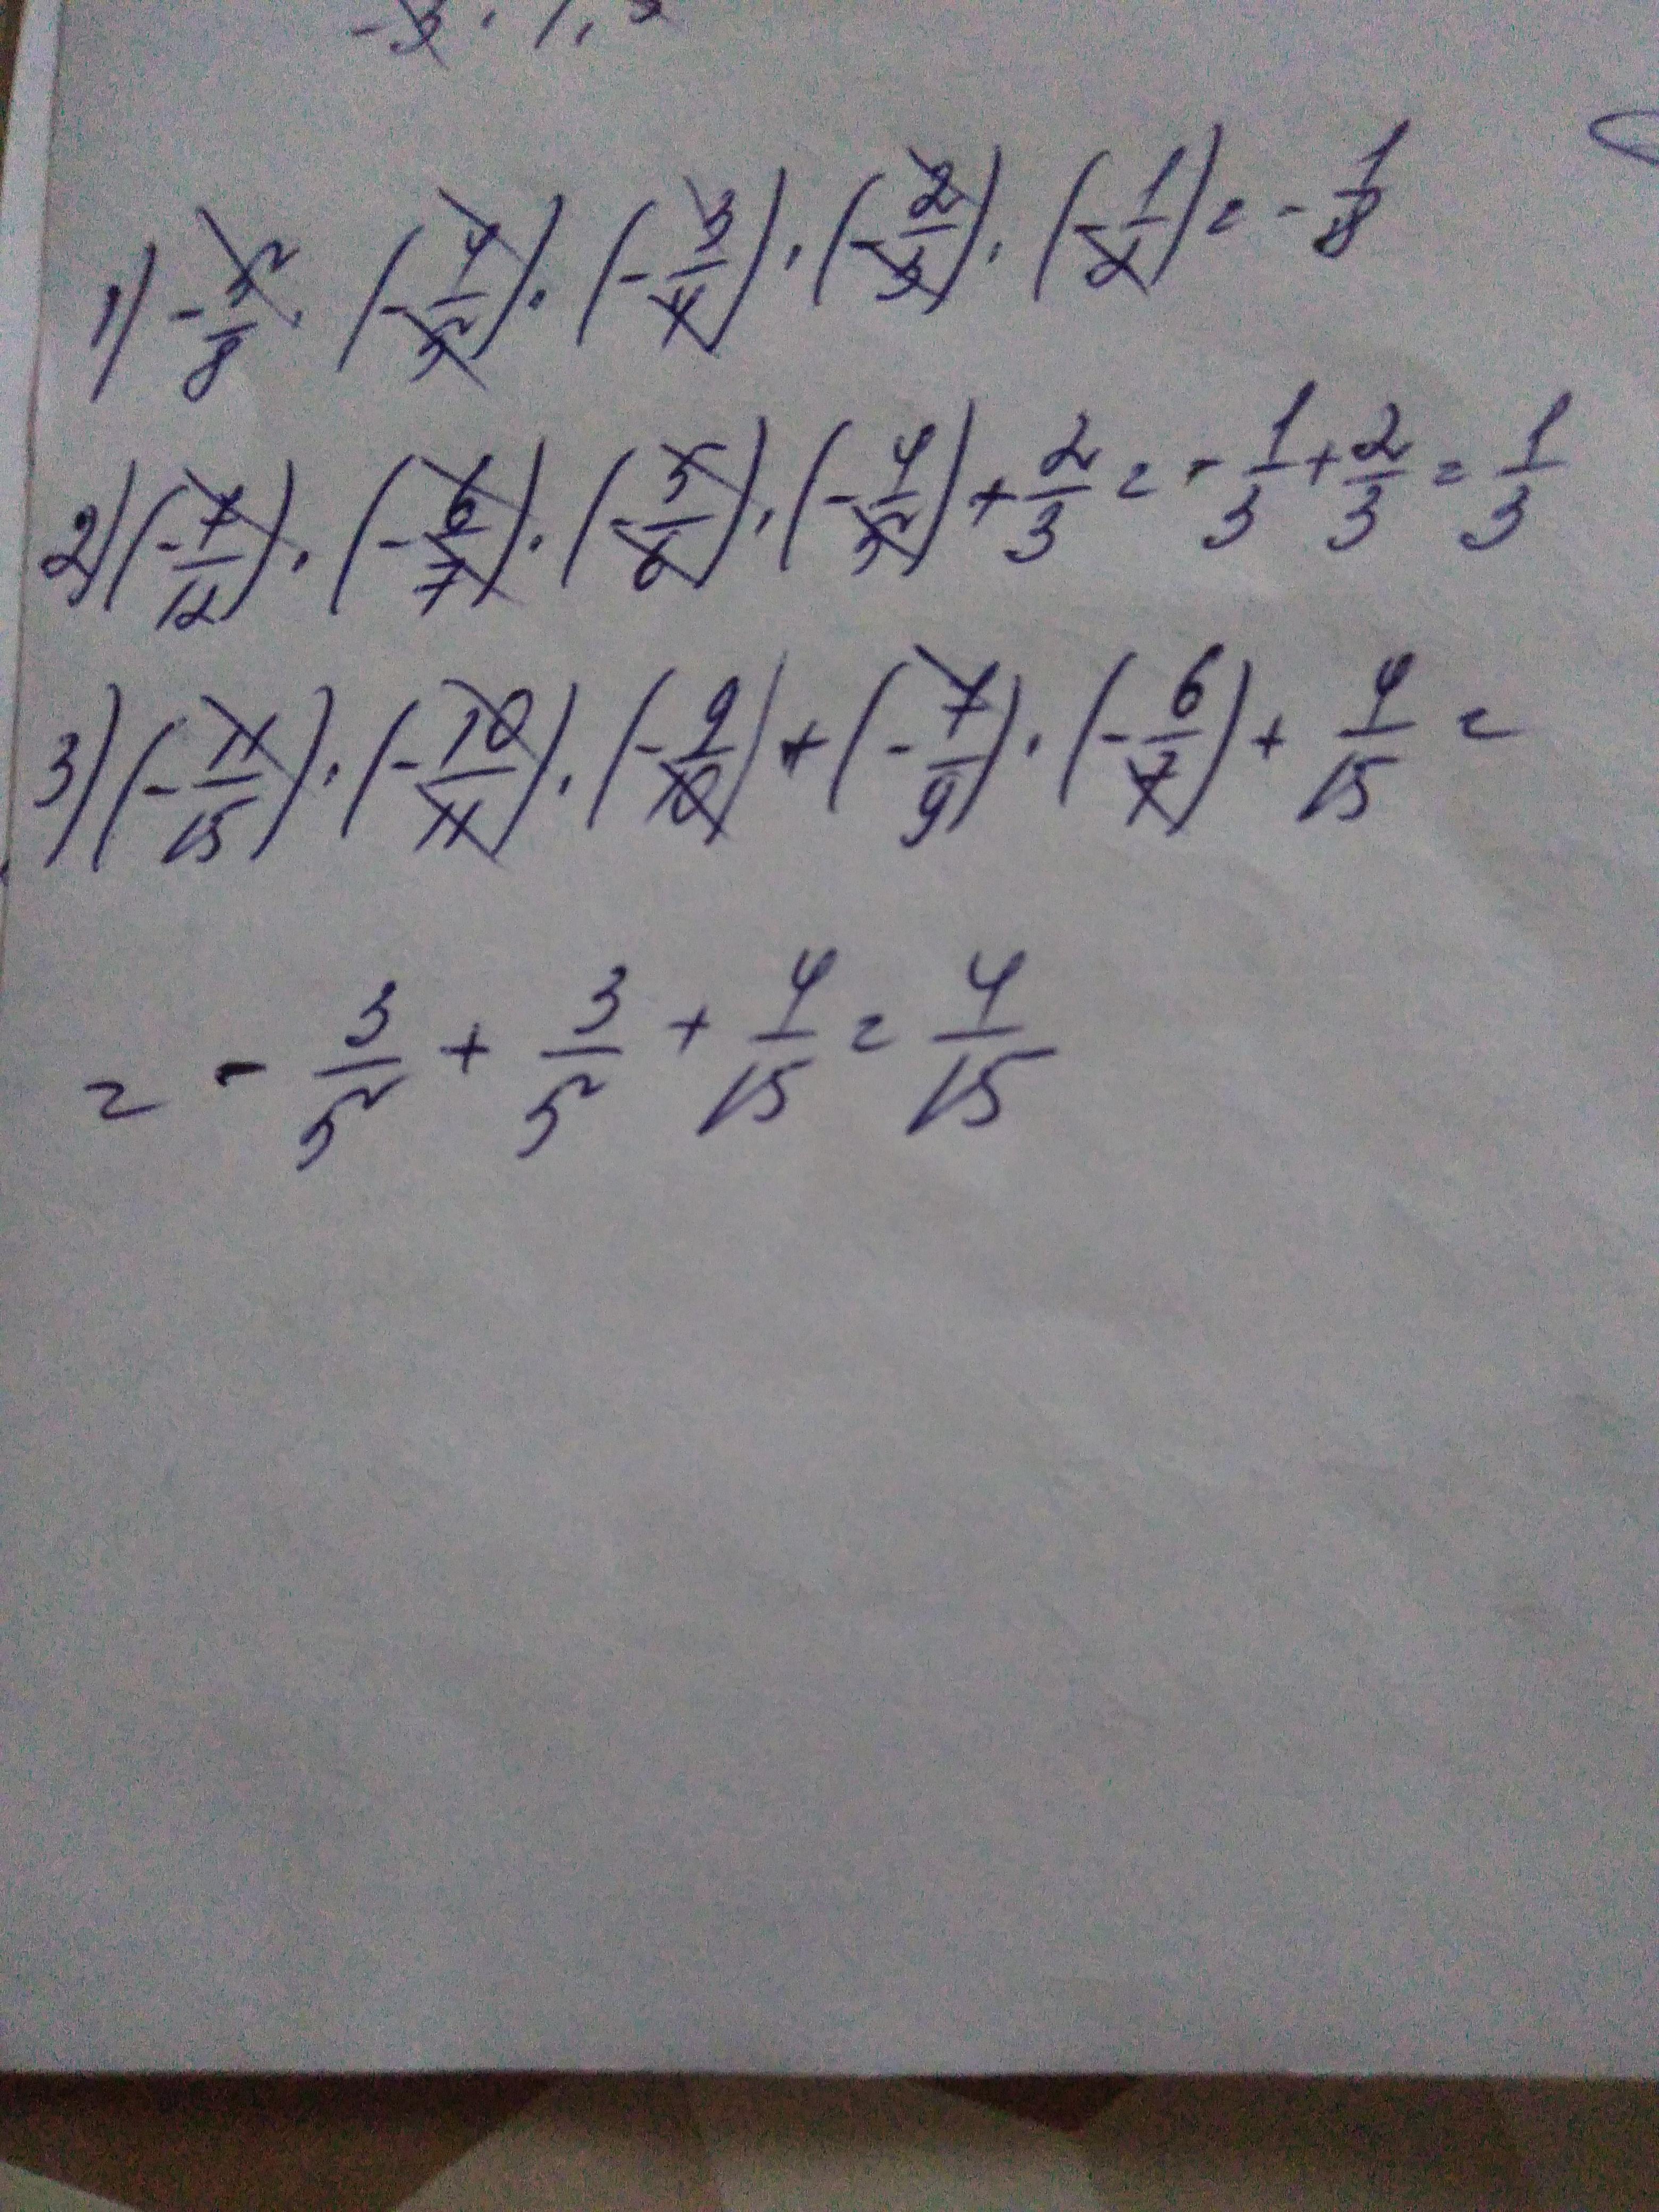 -3 · 1,
1) -5/8 · (-4/5) · (-3/4) · (-2/3) · (-1/2) = -1/8
2) (-7/12) · (-6/7) · (-5/6) · (-4/5) + 2/3 = -1/3 + 2/3 = 1/3
3) (-11/15) · (-10/11) · (-9/10) + (-7/9) · (-6/7) + 4/15 =
= -3/5 + 3/5 + 4/15 = 4/15